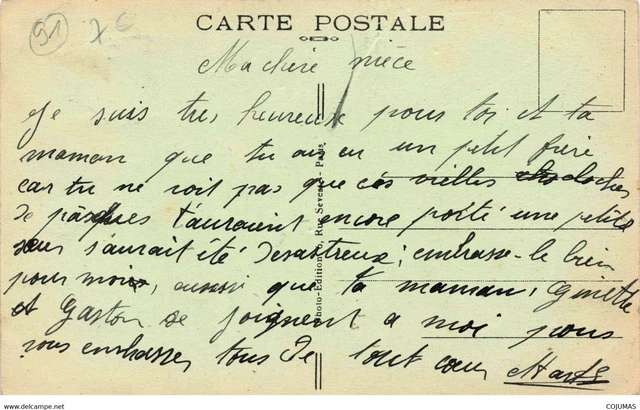 91 7€
CARTE POSTALE
Ma chère nièce
Je suis tres heureuse pour toi et ta
maman que tu ais eu un petit frère
car tu ne voit pas que ces vieilles cloches
de pâques t'auraient encore porté une petite
sœur s'aurait été desastreux ; embrasse-le bien
pour moi, aussi que ta maman ; Ginette
et Gaston se joignent a moi pour
vous embrasser tous De tout cœur
Photo-Edition 6, Rue Seveste - Paris
hippostcard.com/listing COJUMAS